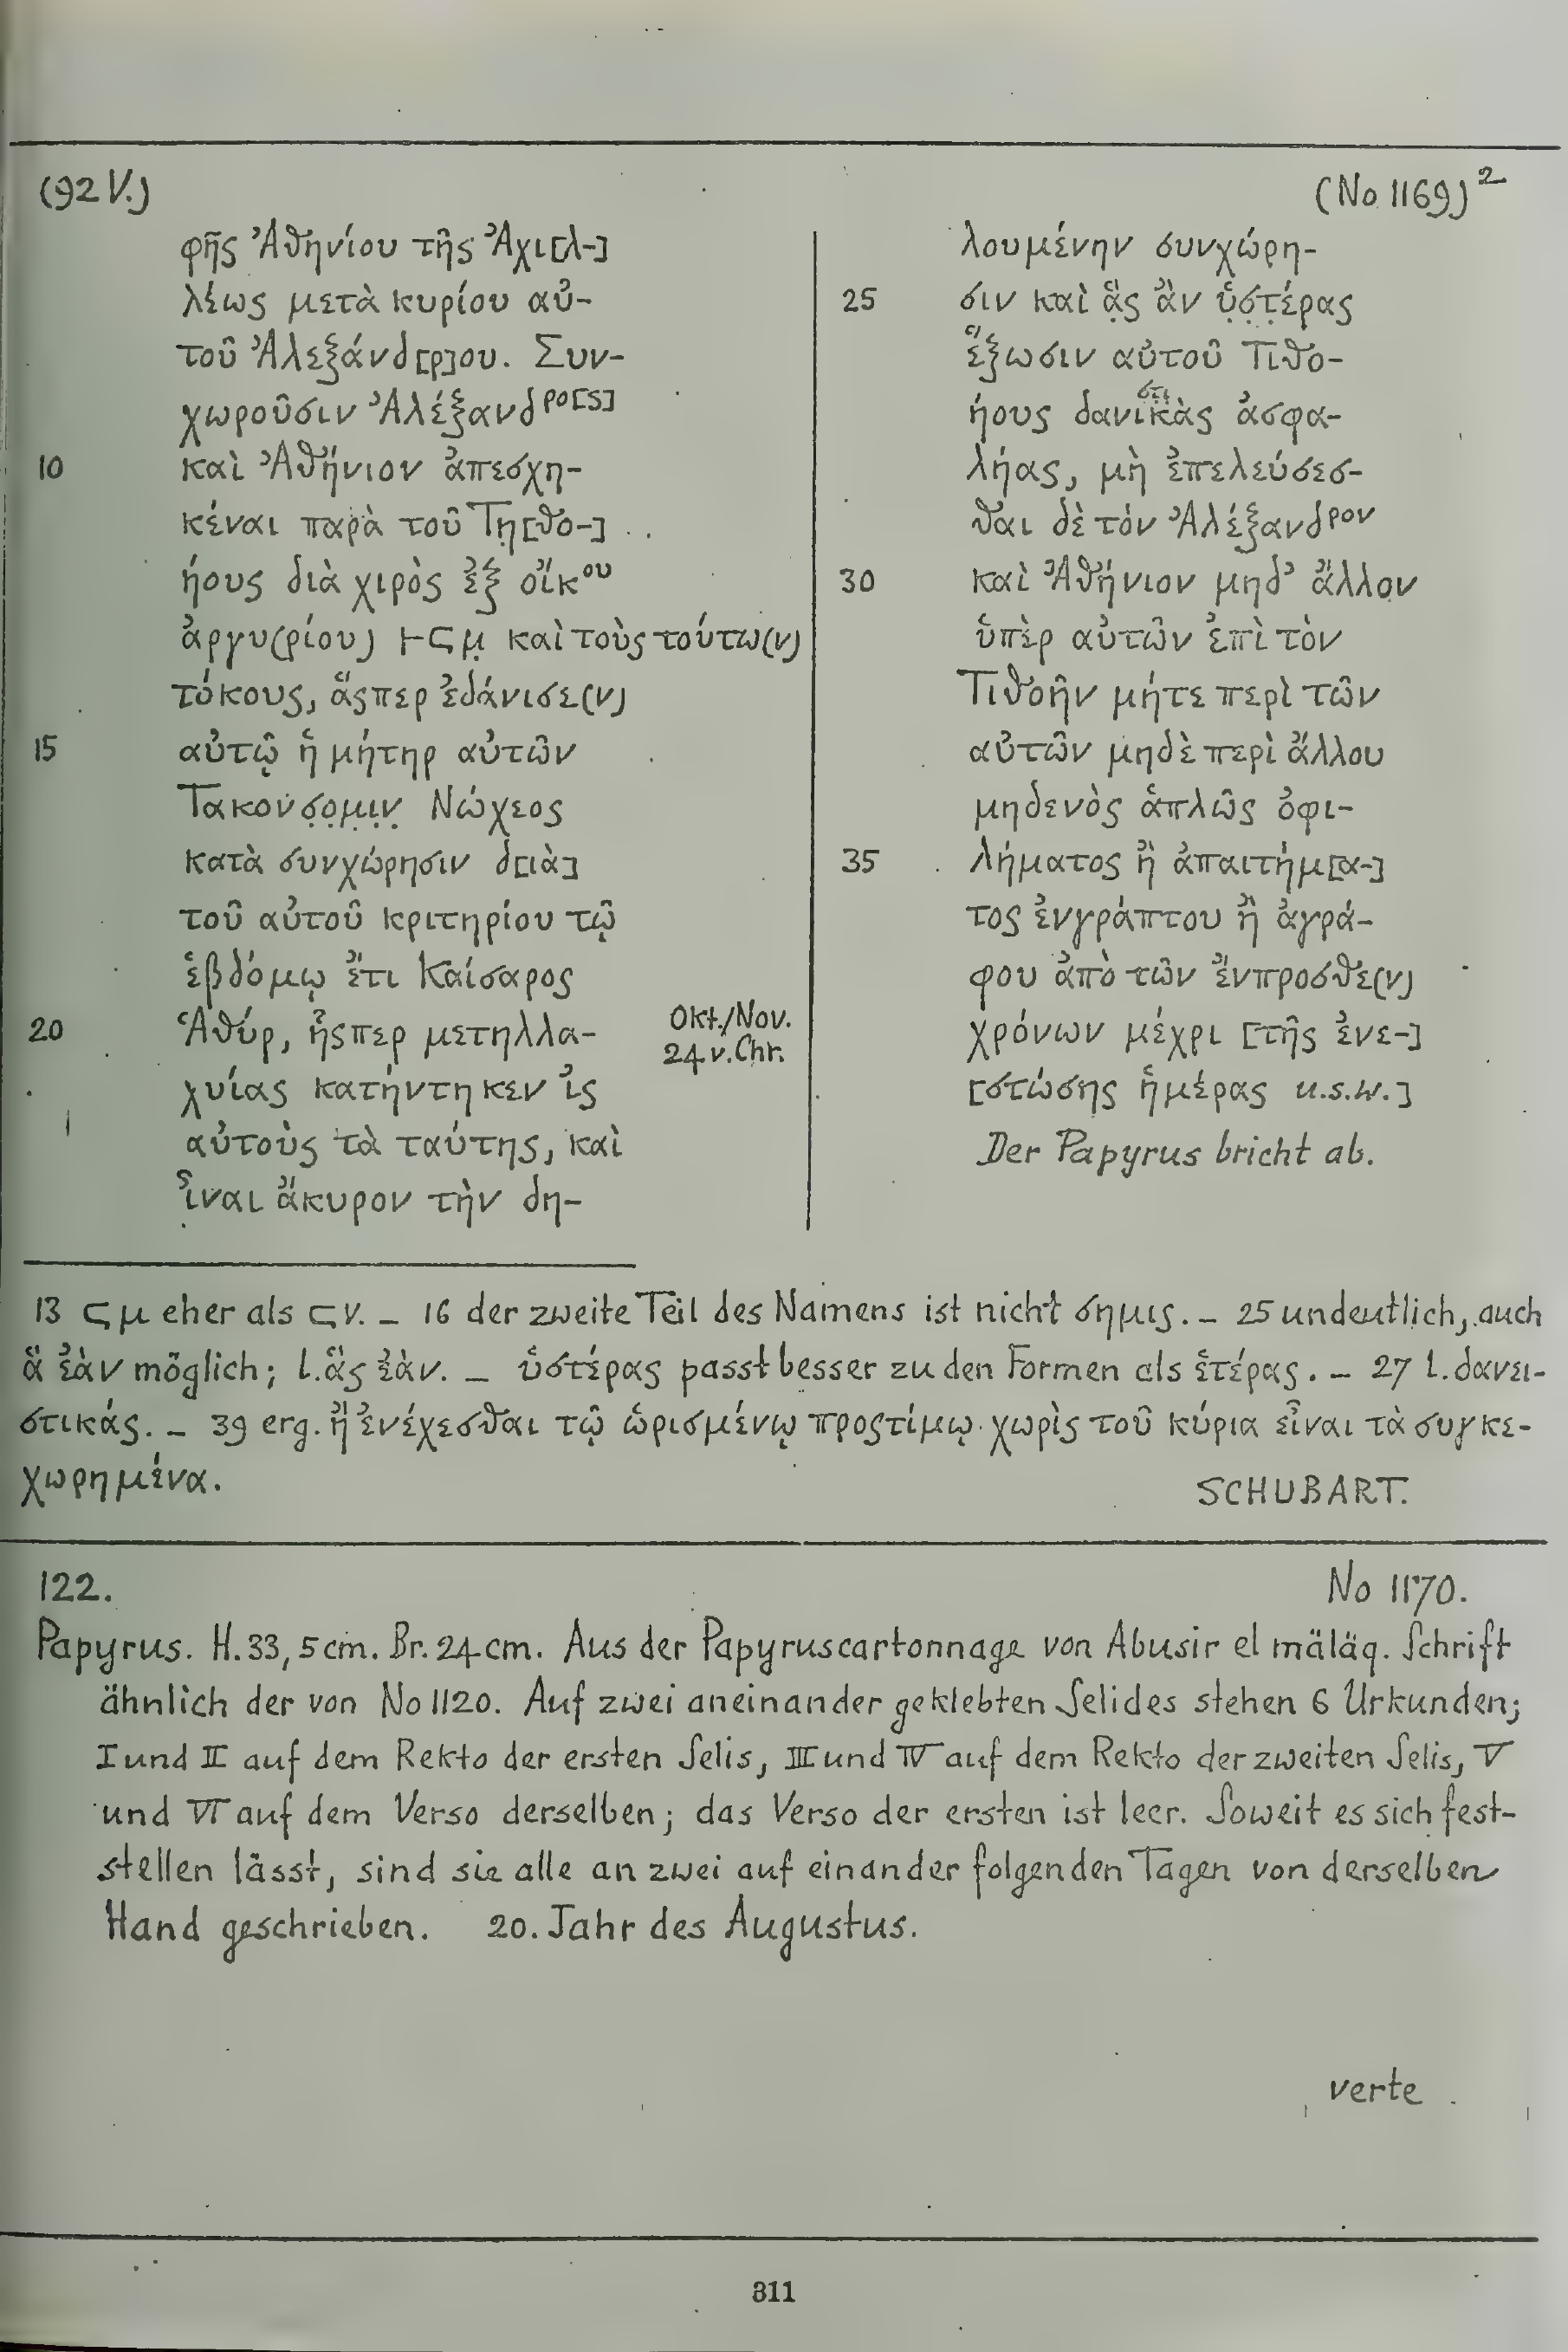 (92 V.)
(No 1169)²
φῆς Ἀθηνίου τῆς Ἀχι[λ-]
λέως μετὰ κυρίου αὐ-
τοῦ Ἀλεξάνδ[ρ]ου. Συν-
χωροῦσιν Ἀλέξανδρο[ς]
10 καὶ Ἀθήνιον ἀπεσχη-
κέναι παρὰ τοῦ Τη[θο-]
ήους διὰ χιρὸς ἐξ οἴκου
ἀργυ(ρίου) ⊢ Ϛ μ̣ καὶ τοὺς τούτω(ν)
τόκους, ἅςπερ ἐδάνισε(ν)
15 αὐτῷ ἡ μήτηρ αὐτῶν
Τακονσ̣ο̣μ̣ι̣ν̣ Νώχεος
κατὰ συνχώρησιν δ[ιὰ]
τοῦ αὐτοῦ κριτηρίου τῷ
ἑβδόμῳ ἔτι Καίσαρος
20 Ἁθύρ, ἧςπερ μετηλλα-
Okt./Nov.
24 v. Chr.
χυίας κατήντηκεν ἰς
αὐτοὺς τὰ ταύτης, καὶ
ἶναι ἄκυρον τὴν δη-
λουμένην συνχώρη-
25 σιν καὶ ἃ̣ς ἂν ὑ̣σ̣τ̣έρας
ἔξωσιν αὐτοῦ Τιθο-
ήους δανικὰς ἀσφα-
λήας, μὴ ἐπελεύσεσ-
θαι δὲ τόν Ἀλέξανδρον
30 καὶ Ἀθήνιον μηδ' ἄλλον
ὑπὲρ αὐτῶν ἐπὶ τὸν
Τιθοῆν μήτε περὶ τῶν
αὐτῶν μηδὲ περὶ ἄλλου
μηδενὸς ἁπλῶς ὀφι-
35 λήματος ἢ ἀπαιτήμ[α-]
τος ἐνγράπτου ἢ ἀγρά-
φου ἀπὸ τῶν ἔνπροσθε(ν)
χρόνων μέχρι [τῆς ἐνε-]
[στώσης ἡμέρας u.s.w.]
Der Papyrus bricht ab.
13 Ϛ μ eher als Ϛ ν. – 16 der zweite Teil des Namens ist nicht σημις. – 25 undeutlich, auch
ἃ ἐὰν möglich; l. ἃς ἐὰν. – ὑστέρας passt besser zu den Formen als ἑτέρας. – 27 l. δανει-
στικάς. – 39 erg. ἢ ἐνέχεσθαι τῷ ὡρισμένῳ προςτίμῳ· χωρὶς τοῦ κύρια εἶναι τὰ συγκε-
χωρημένα.
SCHUBART.
122.
No 1170.
Papyrus. H. 33,5 cm. Br. 24 cm. Aus der Papyruscartonnage von Abusir el mäläq. Schrift
ähnlich der von No 1120. Auf zwei aneinander geklebten Selides stehen 6 Urkunden;
I und II auf dem Rekto der ersten Selis, III und IV auf dem Rekto der zweiten Selis, V
und VI auf dem Verso derselben; das Verso der ersten ist leer. Soweit es sich fest-
stellen lässt, sind sie alle an zwei auf einander folgenden Tagen von derselben
Hand geschrieben. 20. Jahr des Augustus.
verte
311